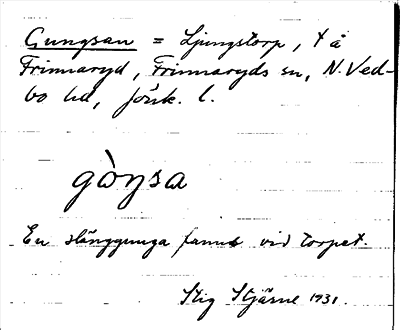 Gungsan = Ljungstorp, t å
Frinnaryd, Frinnaryds sn, N. Ved-
bo hd, Jönk. l.
gòŋsa
En slänggunga fanns vid torpet.
Stig Stjärne 1931.